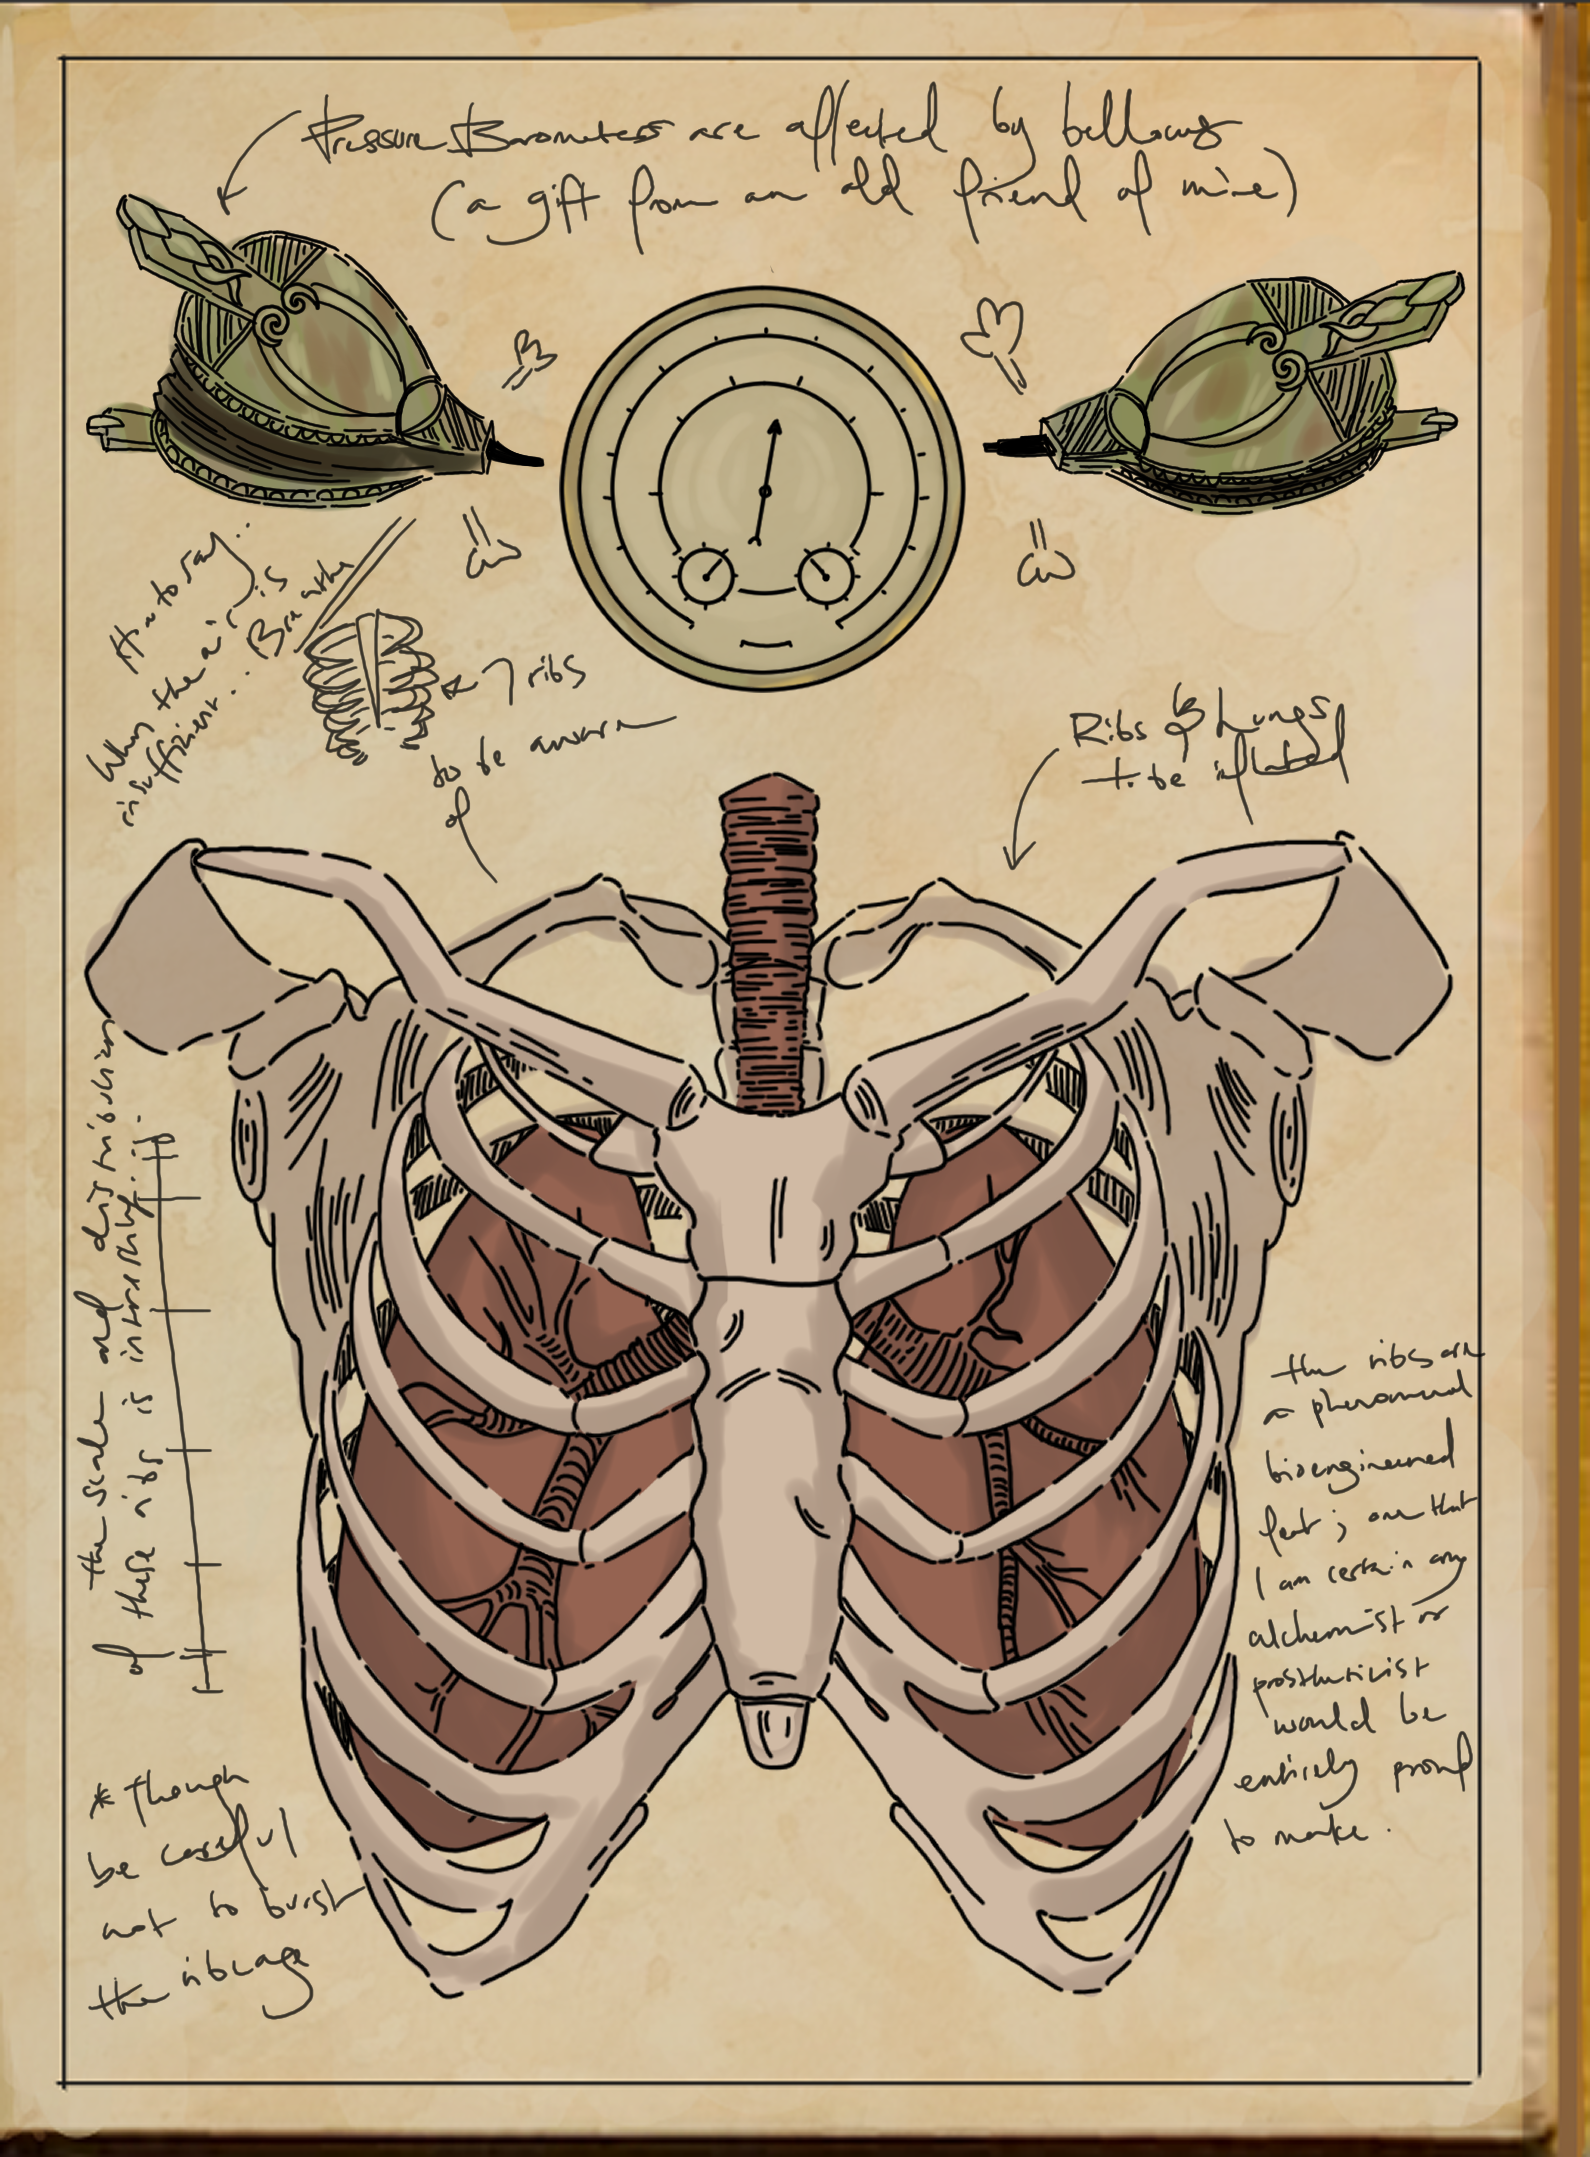 Pressure Barometers are affected by bellows
(a gift from an old friend of mine)
How to say..
When the air is
insufficient... Breathe
7 ribs
to be aware
of
Ribs & Lungs
to be inflated
the scale and distribution
of these ribs is interesting..
the ribs are
a phenomenal
bioengineered
feat; one that
I am certain any
alchemist or
prostheticist
would be
entirely proud
to make.
* though
be careful
not to burst
the ribcage